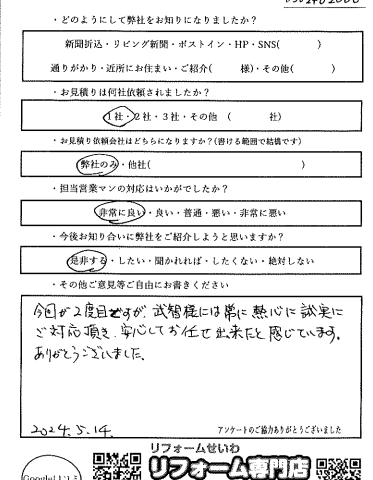 ・どのようにして弊社をお知りになりましたか？
新聞折込・リビング新聞・ポストイン・HP・SNS(　　　)
通りがかり・近所にお住まい・ご紹介(　　　様)・その他(　　　)
・お見積りは何社依頼されましたか？
1社・2社・3社・その他 (　　　社)
・お見積り依頼会社はどちらになりますか？(書ける範囲で結構です)
弊社のみ・他社(　　　)
・担当営業マンの対応はいかがでしたか？
非常に良い・良い・普通・悪い・非常に悪い
・今後お知り合いに弊社をご紹介しようと思いますか？
是非する・したい・聞かれれば・したくない・絶対しない
・その他ご意見等ご自由にお書きください
今回が2度目ですが、武智様には常に熱心に誠実に
ご対応頂き、安心してお任せ出来たと感じています。
ありがとうございました。
2024.5.14.
アンケートのご協力ありがとうございました
リフォームせいわ
リフォーム専門店